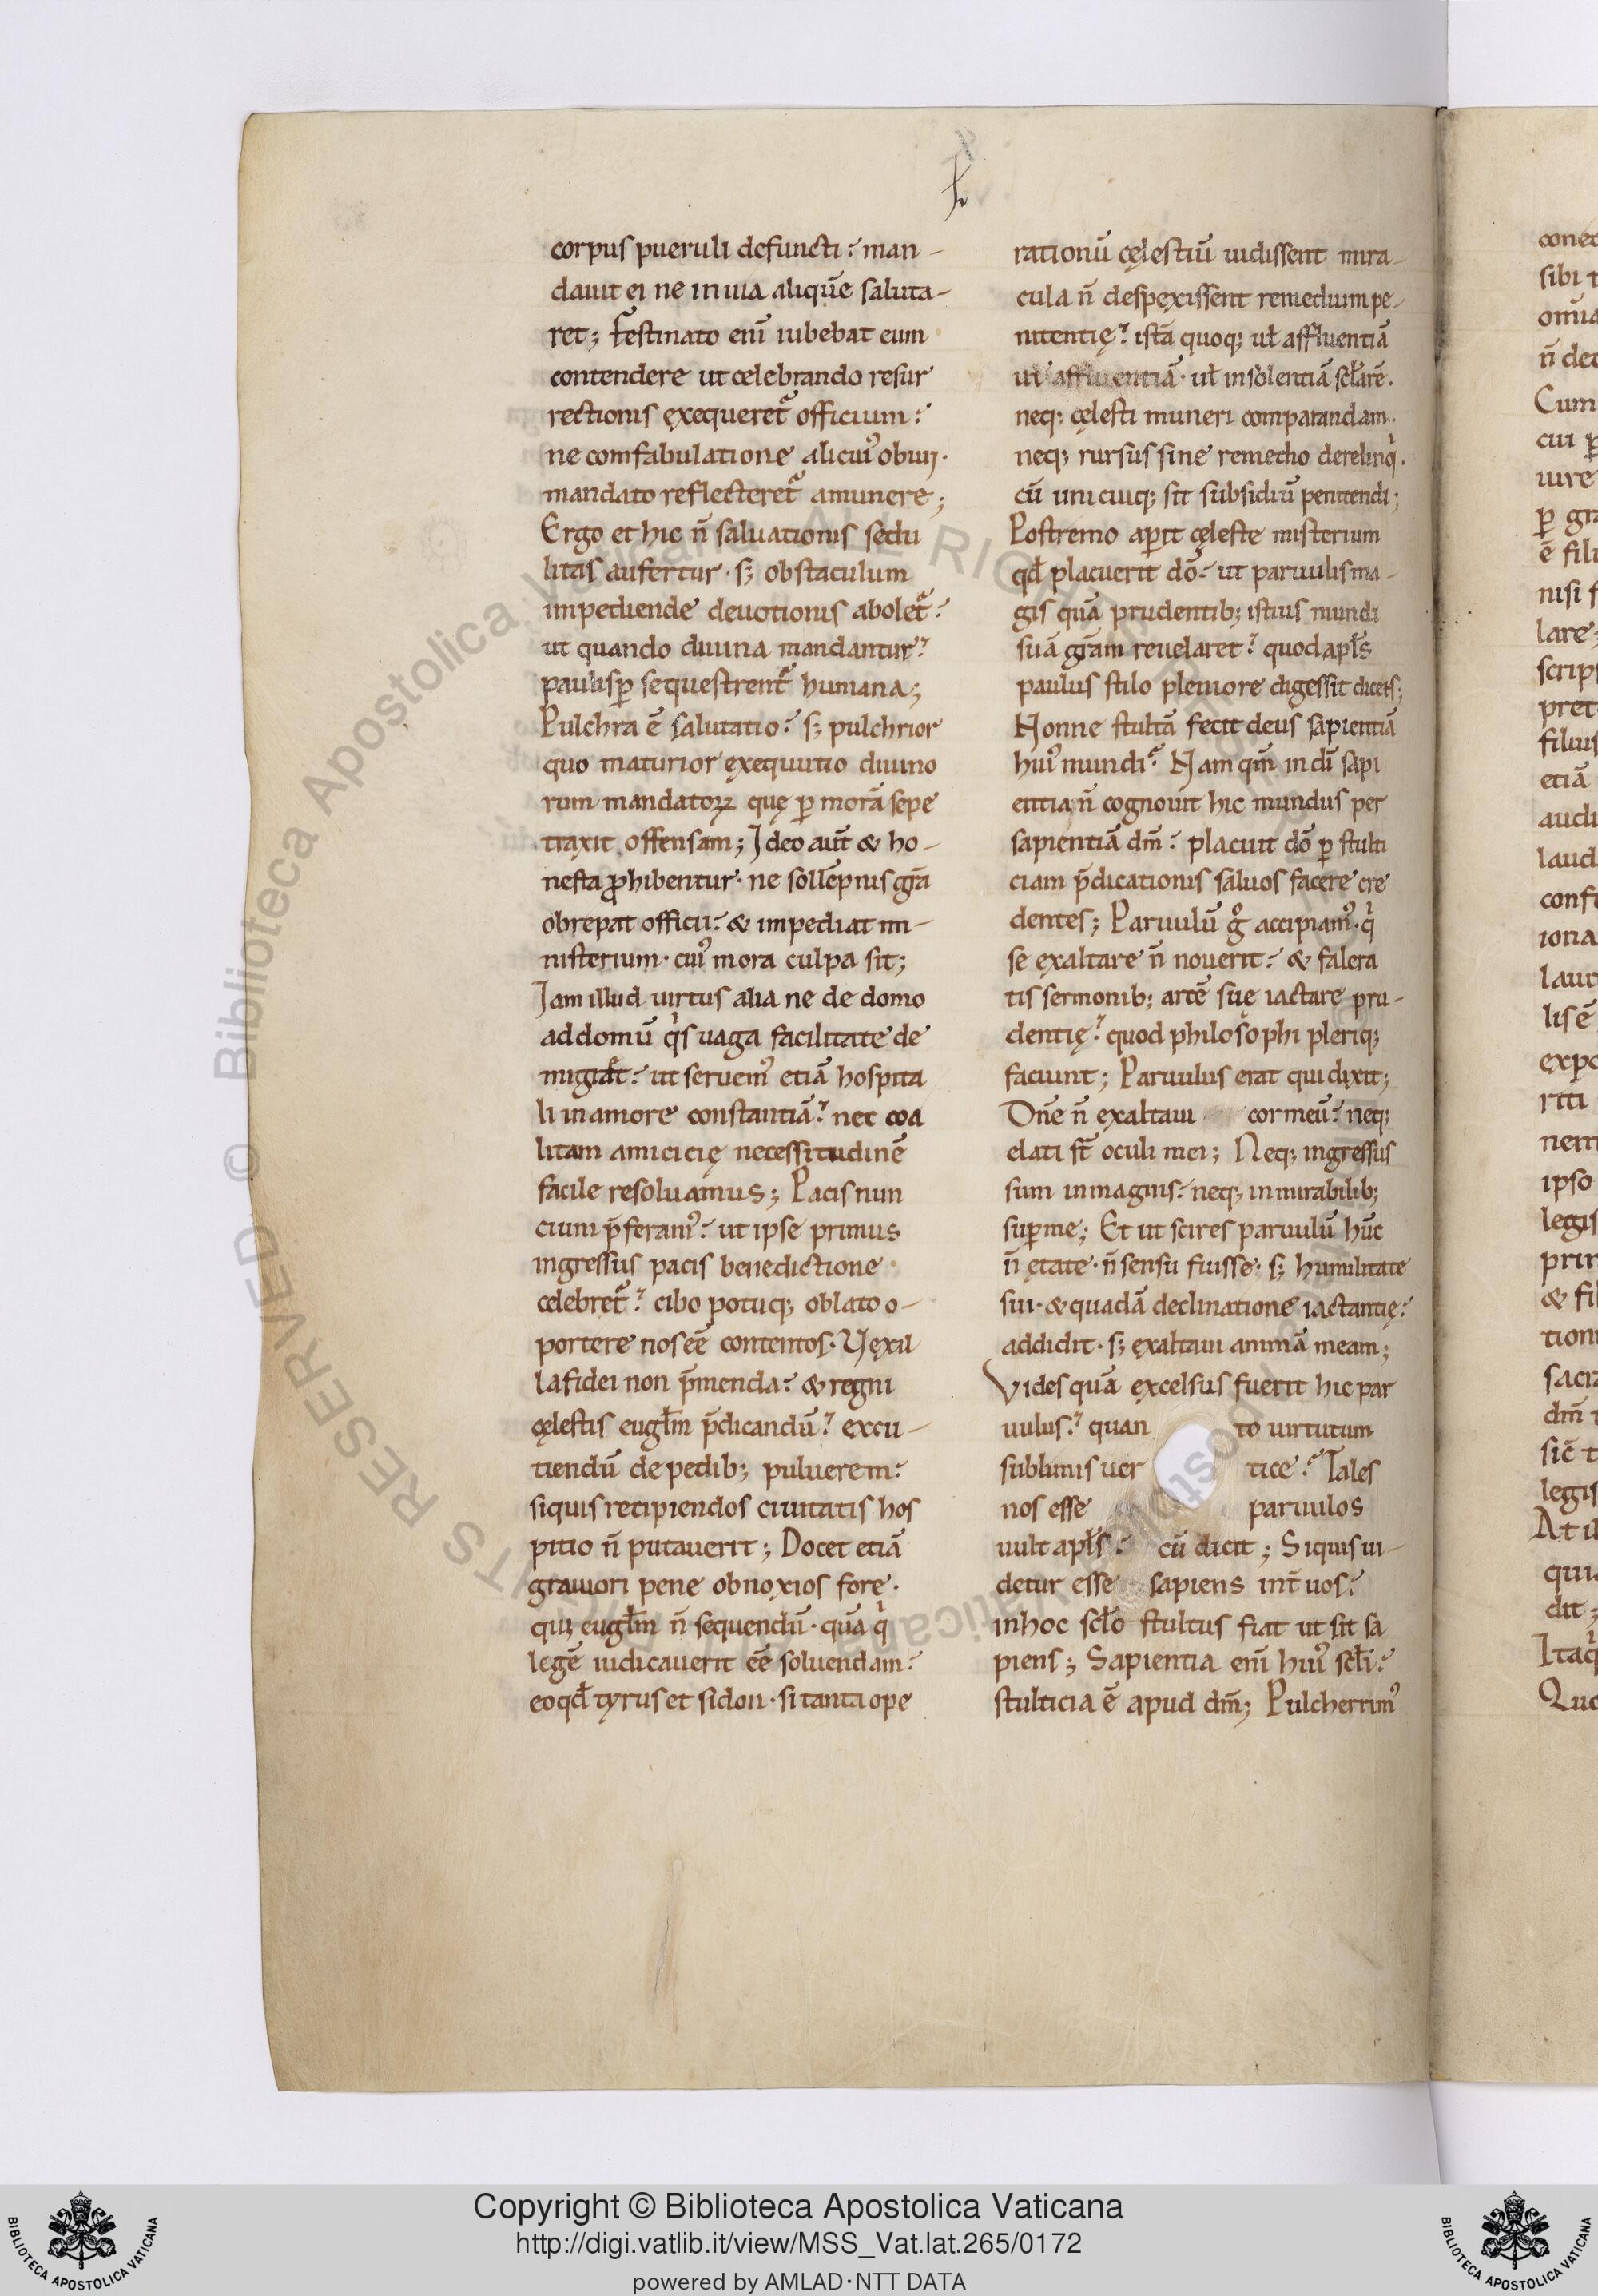 corpus pueruli defuncti? man-
dauit ei ne in uia aliquē saluta-
ret; Festinato enī iubebat eum
contendere ut celebrando resur
rectionis exequeret᷑ officium?
ne comfabulatione alicuiꝰ obuij.
mandato reflecteret᷑ amunere;
Ergo et hic n̄ saluationis sedu
litas aufertur. sꝫ obstaculum
impediende deuotionis abolet᷑?
ut quando diuina mandantur?
paulisꝑ sequestrent᷑ humana;
Pulchra ē salutatio? sꝫ pulchrior
quo maturior exequutio diuino
rum mandatoꝝ quę ꝑ morā sepe
traxit offensam; Ideo aut̄ & ho-
nesta ꝓhibentur. ne sollēpnis grā
obrepat officii? & impediat mi-
nisterium. cuiꝰ mora culpa sit;
Iam illud uirtus alia ne de domo
ad domū qͥs uaga facilitate de
migrat? ut seruemꝰ etiā hospita
li in amore constantiā? nec coa
litam amicicię necessitudinē
facile resoluamus; Pacis nun
cium p̄feramꝰ? ut ipse primus
ingressus pacis benedictione
celebret᷑? cibo potuqꝫ oblato o-
portere nos eē contentos. Vexil
la fidei non p̄menda? & regni
cęlestis eugłm p̄dicandū? excu-
tiendū de pedibꝫ puluerem?
siquis recipiendos ciuitatis hos
pitio n̄ putauerit; Docet etiā
grauiori pene obnoxios fore.
qui eugłm n̄ sequendū. quā qͥ
legē iudicauerit eē soluendam?
eo qđ tyrus et sidon. si tanta ope
rationū cęlestiū uidissent mira-
cula n̄ despexissent remedium pe-
nitentię? istā quoqꝫ uł affluentiā
affluentiā. uł insolentiā scłarē.
neqꝫ cęlesti muneri comparandam.
neqꝫ rursus sine remedio derelinqͥ.
cū unicuiqꝫ sit subsidiū penitendi;
Postremo aꝑit cęleste misterium
qđ placuerit dō? ut paruulis ma-
gis quā prudentibꝫ istius mundi
suā grām reuelaret? quod apłs
paulus stilo pleniore digessit dicens;
Nonne stultā fecit deus sapientiā
huiꝰ mundi? Nam qm̄ in dī sapi
entia n̄ cognouit hic mundus per
sapientiā dm̄? placuit dō ꝑ stulti
ciam p̄dicationis saluos facere cre
dentes; Paruulū gͦ accipiamꝰ. qͥ
se exaltare n̄ nouerit? & falera
tis sermonibꝫ artē suę iactare pru-
dentię? quod philosophi pleriqꝫ
faciunt; Paruulus erat qui dixit;
Dn̄e n̄ exaltaui cor meū? neqꝫ
elati st̄ oculi mei; Neqꝫ ingressus
sum in magnis? neqꝫ in mirabilibꝫ
suꝑ me; Et ut scires paruulū hūc
n̄ ętate. n̄ sensu fuisse. sꝫ humilitate
sui. & quadā declinatione iactantię?
addidit. sꝫ exaltaui animā meam;
Vides quā excelsus fuerit hic par
uulus? quan to uirtutum
sublimis uer tice? Tales
nos esse paruulos
uult apłs? cū dicit; Siquis ui-
detur esse sapiens int̄ uos?
in hoc scło stultus fiat ut sit sa
piens; Sapientia enī huiꝰ scłi?
stulticia ē apud dm̄; Pulcherrimꝰ
Copyright © Biblioteca Apostolica Vaticana
http://digi.vatlib.it/view/MSS_Vat.lat.265/0172
powered by AMLAD·NTT DATA
BIBLIOTECA APOSTOLICA VATICANA
BIBLIOTECA APOSTOLICA VATICANA